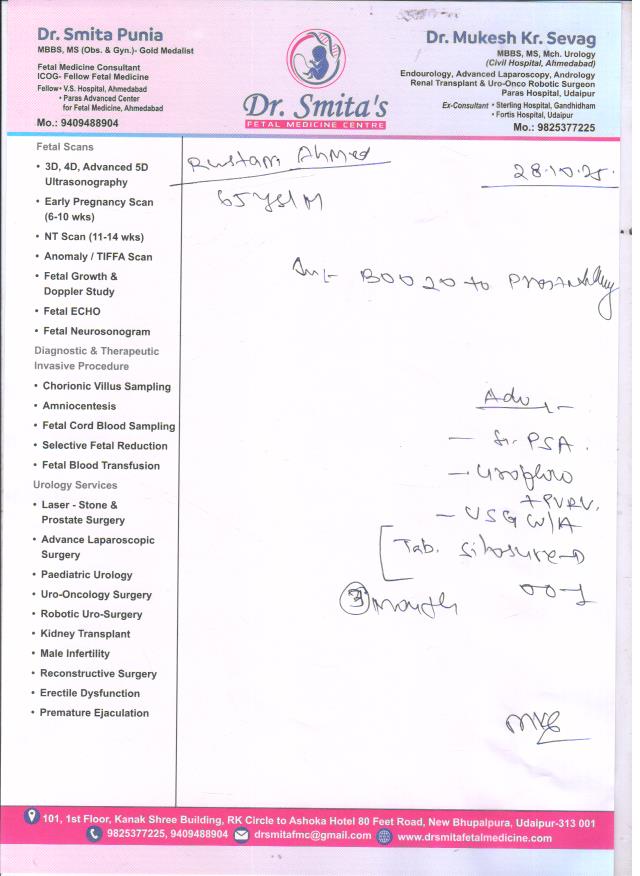 Dr. Smita Punia
MBBS, MS (Obs. & Gyn.)- Gold Medalist
Fetal Medicine Consultant
ICOG- Fellow Fetal Medicine
Fellow • V.S. Hospital, Ahmedabad
• Paras Advanced Center
for Fetal Medicine, Ahmedabad
Mo.: 9409488904
Dr. Smita's
FETAL MEDICINE CENTRE
Dr. Mukesh Kr. Sevag
MBBS, MS, Mch. Urology
(Civil Hospital, Ahmedabad)
Endourology, Advanced Laparoscopy, Andrology
Renal Transplant & Uro-Onco Robotic Surgeon
Paras Hospital, Udaipur
Ex-Consultant • Sterling Hospital, Gandhidham
• Fortis Hospital, Udaipur
Mo.: 9825377225
Fetal Scans
• 3D, 4D, Advanced 5D
Ultrasonography
• Early Pregnancy Scan
(6-10 wks)
• NT Scan (11-14 wks)
• Anomaly / TIFFA Scan
• Fetal Growth &
Doppler Study
• Fetal ECHO
• Fetal Neurosonogram
Diagnostic & Therapeutic
Invasive Procedure
• Chorionic Villus Sampling
• Amniocentesis
• Fetal Cord Blood Sampling
• Selective Fetal Reduction
• Fetal Blood Transfusion
Urology Services
• Laser - Stone &
Prostate Surgery
• Advance Laparoscopic
Surgery
• Paediatric Urology
• Uro-Oncology Surgery
• Robotic Uro-Surgery
• Kidney Transplant
• Male Infertility
• Reconstructive Surgery
• Erectile Dysfunction
• Premature Ejaculation
Rustam Ahmed
28.10.25.
65 yrs/M
BOO 20 to
Adv :-
- Sr. PSA.
- Uroflow
+ PVRV.
- USG W/A
[Tab. Silosure-D
00-1
3 month
101, 1st Floor, Kanak Shree Building, RK Circle to Ashoka Hotel 80 Feet Road, New Bhupalpura, Udaipur-313 001
9825377225, 9409488904 drsmitafmc@gmail.com www.drsmitafetalmedicine.com